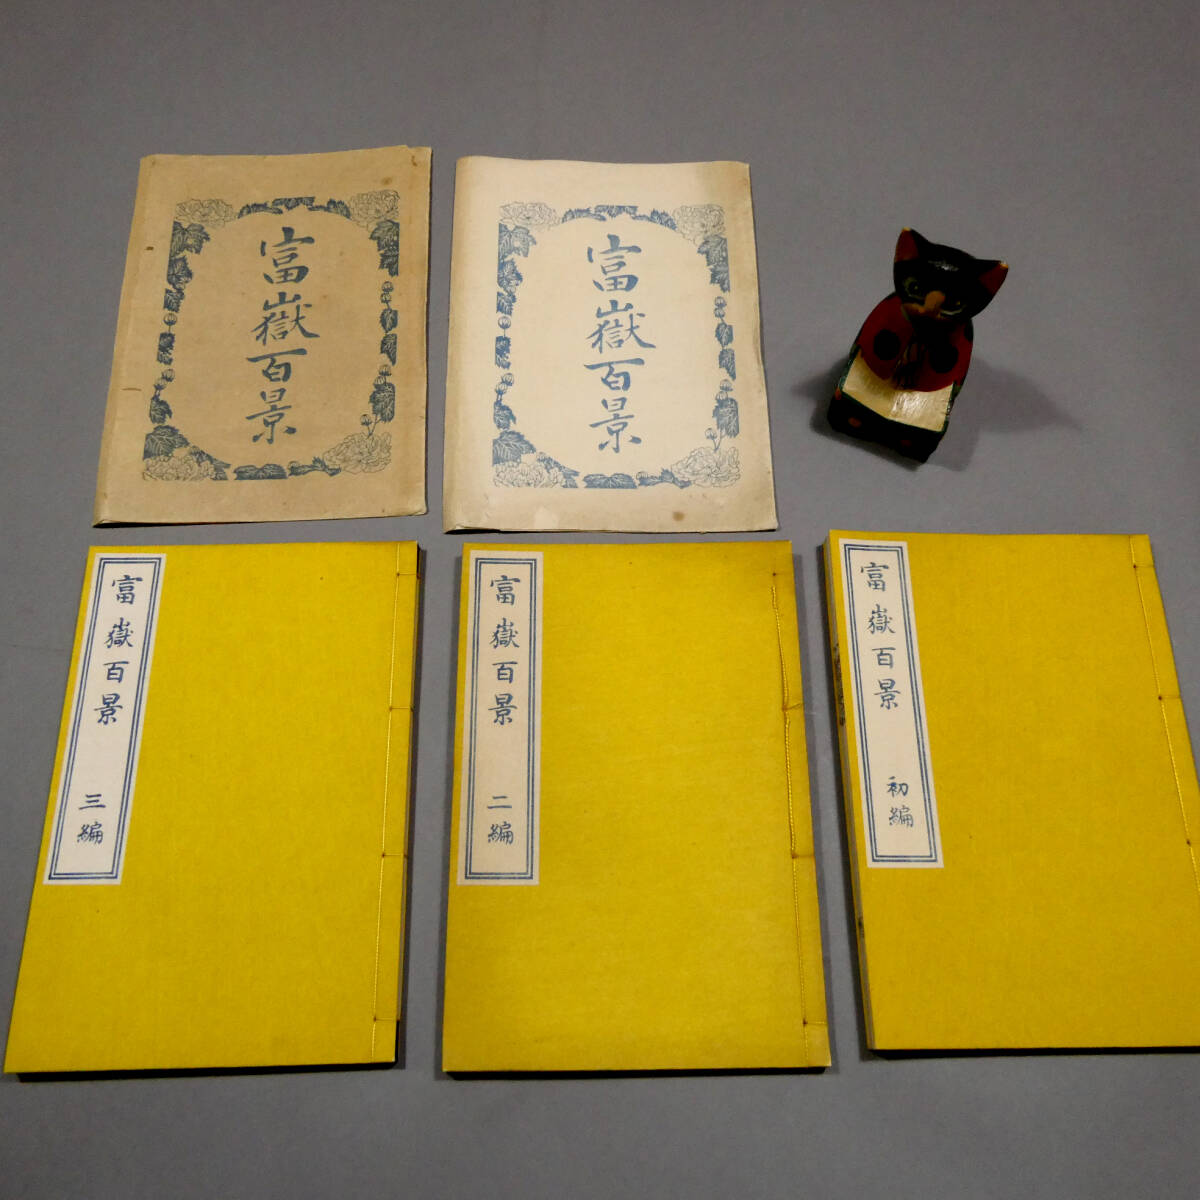 富嶽百景
富嶽百景
富嶽百景 三編
富嶽百景 二編
富嶽百景 初編